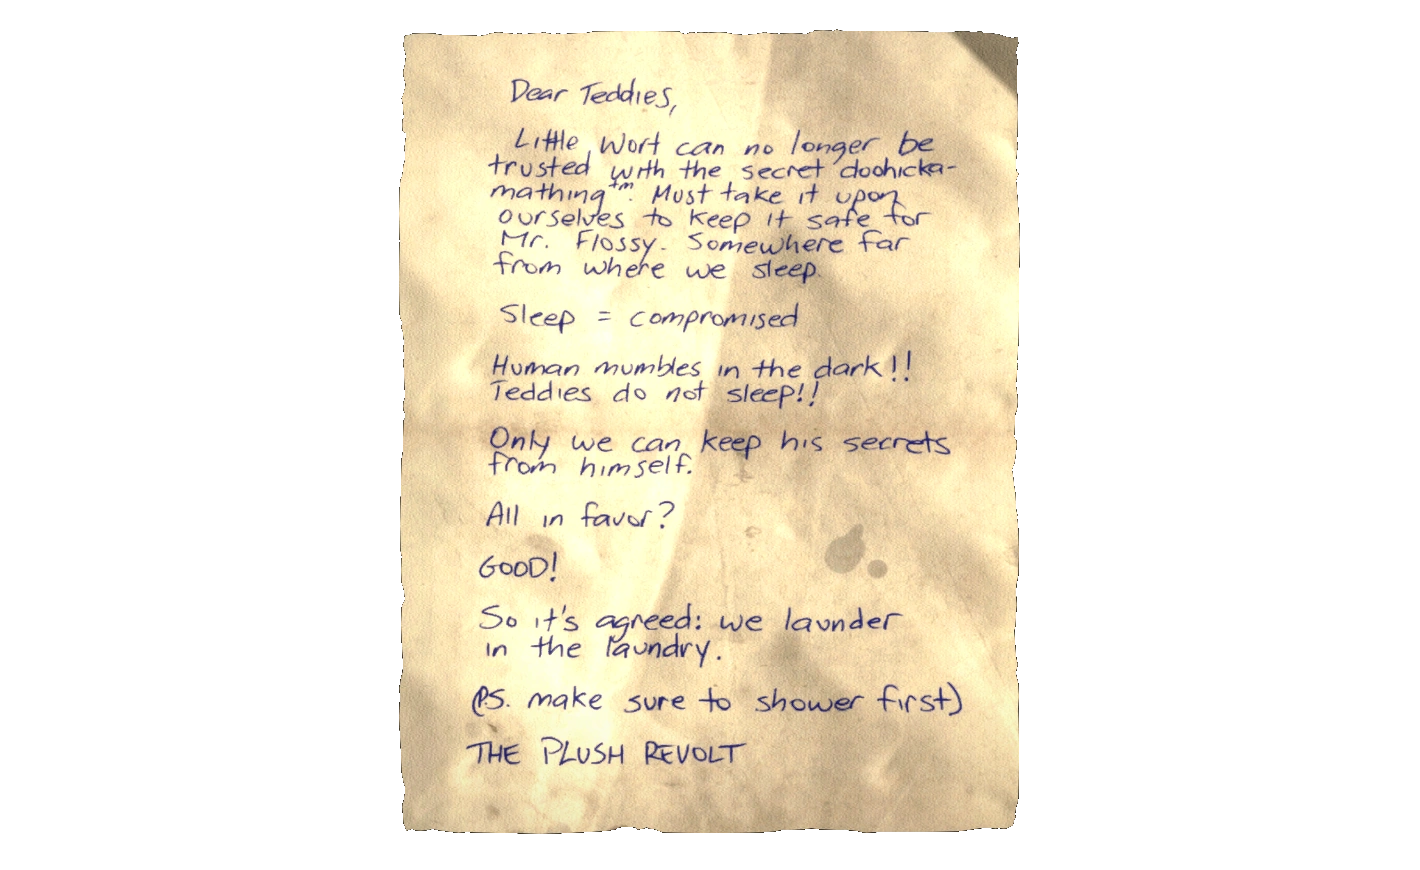 Dear Teddies,
Little Wort can no longer be
trusted with the secret doohicka-
mathing™. Must take it upon
ourselves to keep it safe for
Mr. Flossy. Somewhere far
from where we sleep.
Sleep = compromised
Human mumbles in the dark!!
Teddies do not sleep!!
Only we can keep his secrets
from himself.
All in favor?
GOOD!
So it's agreed: we launder
in the laundry.
(P.S. make sure to shower first)
THE PLUSH REVOLT